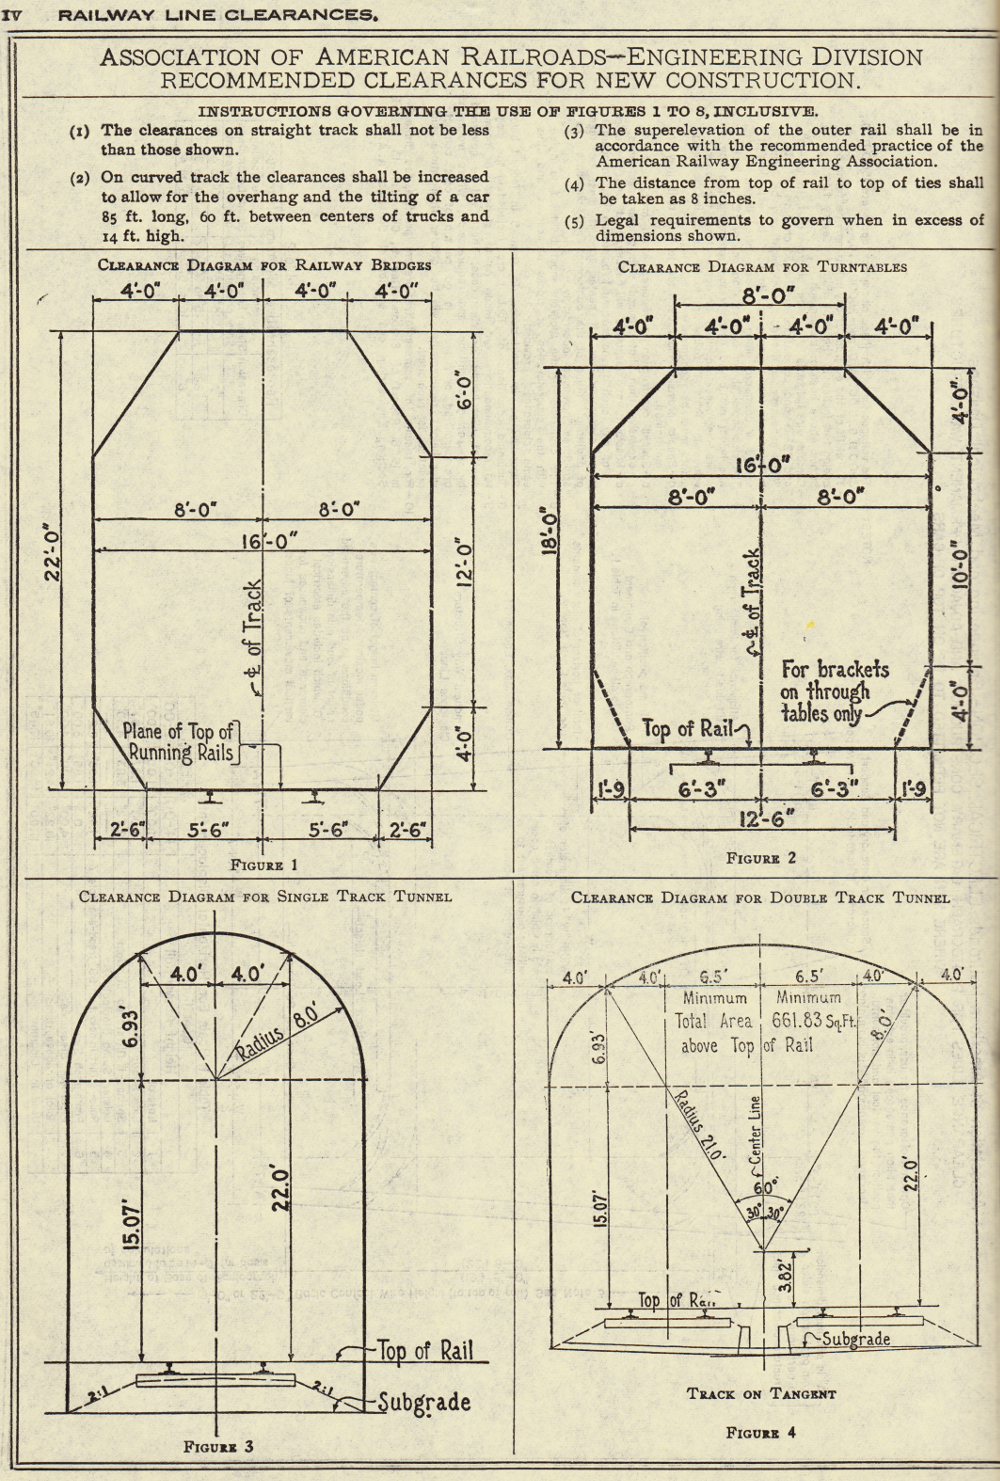 IV RAILWAY LINE CLEARANCES.
ASSOCIATION OF AMERICAN RAILROADS—ENGINEERING DIVISION
RECOMMENDED CLEARANCES FOR NEW CONSTRUCTION.
INSTRUCTIONS GOVERNING THE USE OF FIGURES 1 TO 8, INCLUSIVE.
(1) The clearances on straight track shall not be less
than those shown.
(2) On curved track the clearances shall be increased
to allow for the overhang and the tilting of a car
85 ft. long, 60 ft. between centers of trucks and
14 ft. high.
(3) The superelevation of the outer rail shall be in
accordance with the recommended practice of the
American Railway Engineering Association.
(4) The distance from top of rail to top of ties shall
be taken as 8 inches.
(5) Legal requirements to govern when in excess of
dimensions shown.
CLEARANCE DIAGRAM FOR RAILWAY BRIDGES
4'-0" 4'-0" 4'-0" 4'-0"
6'-0"
8'-0" 8'-0"
16'-0"
22'-0"
12'-0"
℄ of Track
Plane of Top of
Running Rails
4'-0"
2'-6" 5'-6" 5'-6" 2'-6"
FIGURE 1
CLEARANCE DIAGRAM FOR TURNTABLES
8'-0"
4'-0" 4'-0" 4'-0" 4'-0"
4'-0"
16'-0"
8'-0" 8'-0"
18'-0"
10'-0"
℄ of Track
For brackets
on through
tables only
Top of Rail
4'-0"
1'-9 6'-3" 6'-3" 1'-9
12'-6"
FIGURE 2
CLEARANCE DIAGRAM FOR SINGLE TRACK TUNNEL
4.0' 4.0'
6.93'
Radius 8.0'
15.07'
22.0'
Top of Rail
2:1 2:1
Subgrade
FIGURE 3
CLEARANCE DIAGRAM FOR DOUBLE TRACK TUNNEL
4.0' 4.0' 6.5' 6.5' 4.0' 4.0'
Minimum Minimum
Total Area 661.83 Sq.Ft.
above Top of Rail
6.93'
8.0'
Radius 21.0'
Center Line
60°
30° 30°
15.07'
22.0'
3.82'
Top of Rail
Subgrade
TRACK ON TANGENT
FIGURE 4